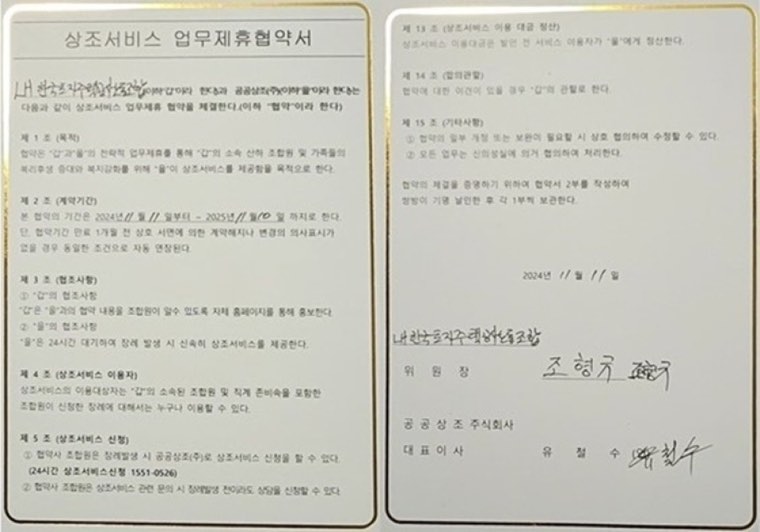 상조서비스 업무제휴협약서
LH 한국토지주택공사노동조합(이하"갑"이라 한다)과 공공상조(주)(이하"을"이라 한다)는
다음과 같이 상조서비스 업무제휴 협약을 체결한다.(이하 "협약"이라 한다)
제 1 조 (목적)
협약은 "갑"과"을"의 전략적 업무제휴를 통해 "갑"의 소속 산하 조합원 및 가족들의
복리후생 증대와 복지강화를 위해 "을"이 상조서비스를 제공함을 목적으로 한다.
제 2 조 (계약기간)
본 협약의 기간은 2024년 11월 11일부터 ~ 2025년 11월 10일 까지로 한다.
단, 협약기간 만료 1개월 전 상호 서면에 의한 계약해지나 변경의 의사표시가
없을 경우 동일한 조건으로 자동 연장된다.
제 3 조 (협조사항)
① "갑"의 협조사항
"갑"은 "을"과의 협약 내용을 조합원이 알수 있도록 자체 홈페이지를 통해 홍보한다.
② "을"의 협조사항
"을"은 24시간 대기하여 장례 발생 시 신속히 상조서비스를 제공한다.
제 4 조 (상조서비스 이용자)
상조서비스의 이용대상자는 "갑"의 소속된 조합원 및 직계 존비속을 포함한
조합원이 신청한 장례에 대해서는 누구나 이용할 수 있다.
제 5 조 (상조서비스 신청)
① 협약사 조합원은 장례발생 시 공공상조(주)로 상조서비스 신청을 할 수 있다.
(24시간 상조서비스신청 1551-0526)
② 협약사 조합원은 상조서비스 관련 문의 시 장례발생 전이라도 상담을 신청할 수 있다.
제 13 조 (상조서비스 이용 대금 정산)
상조서비스 이용대금은 발인 전 서비스 이용자가 "을"에게 정산한다.
제 14 조 (합의관할)
협약에 대한 이견이 있을 경우 "갑"의 관할로 한다.
제 15 조 (기타사항)
① 협약의 일부 개정 또는 보완이 필요할 시 상호 협의하여 수정할 수 있다.
② 모든 업무는 신의성실에 의거 협의하여 처리한다.
협약의 체결을 증명하기 위하여 협약서 2부를 작성하여
쌍방이 기명 날인한 후 각 1부씩 보관한다.
2024년 11월 11일
LH 한국토지주택공사노동조합
위 원 장 조형규 조형규
공 공 상 조 주식회사
대 표 이 사 유 철 수 유철수